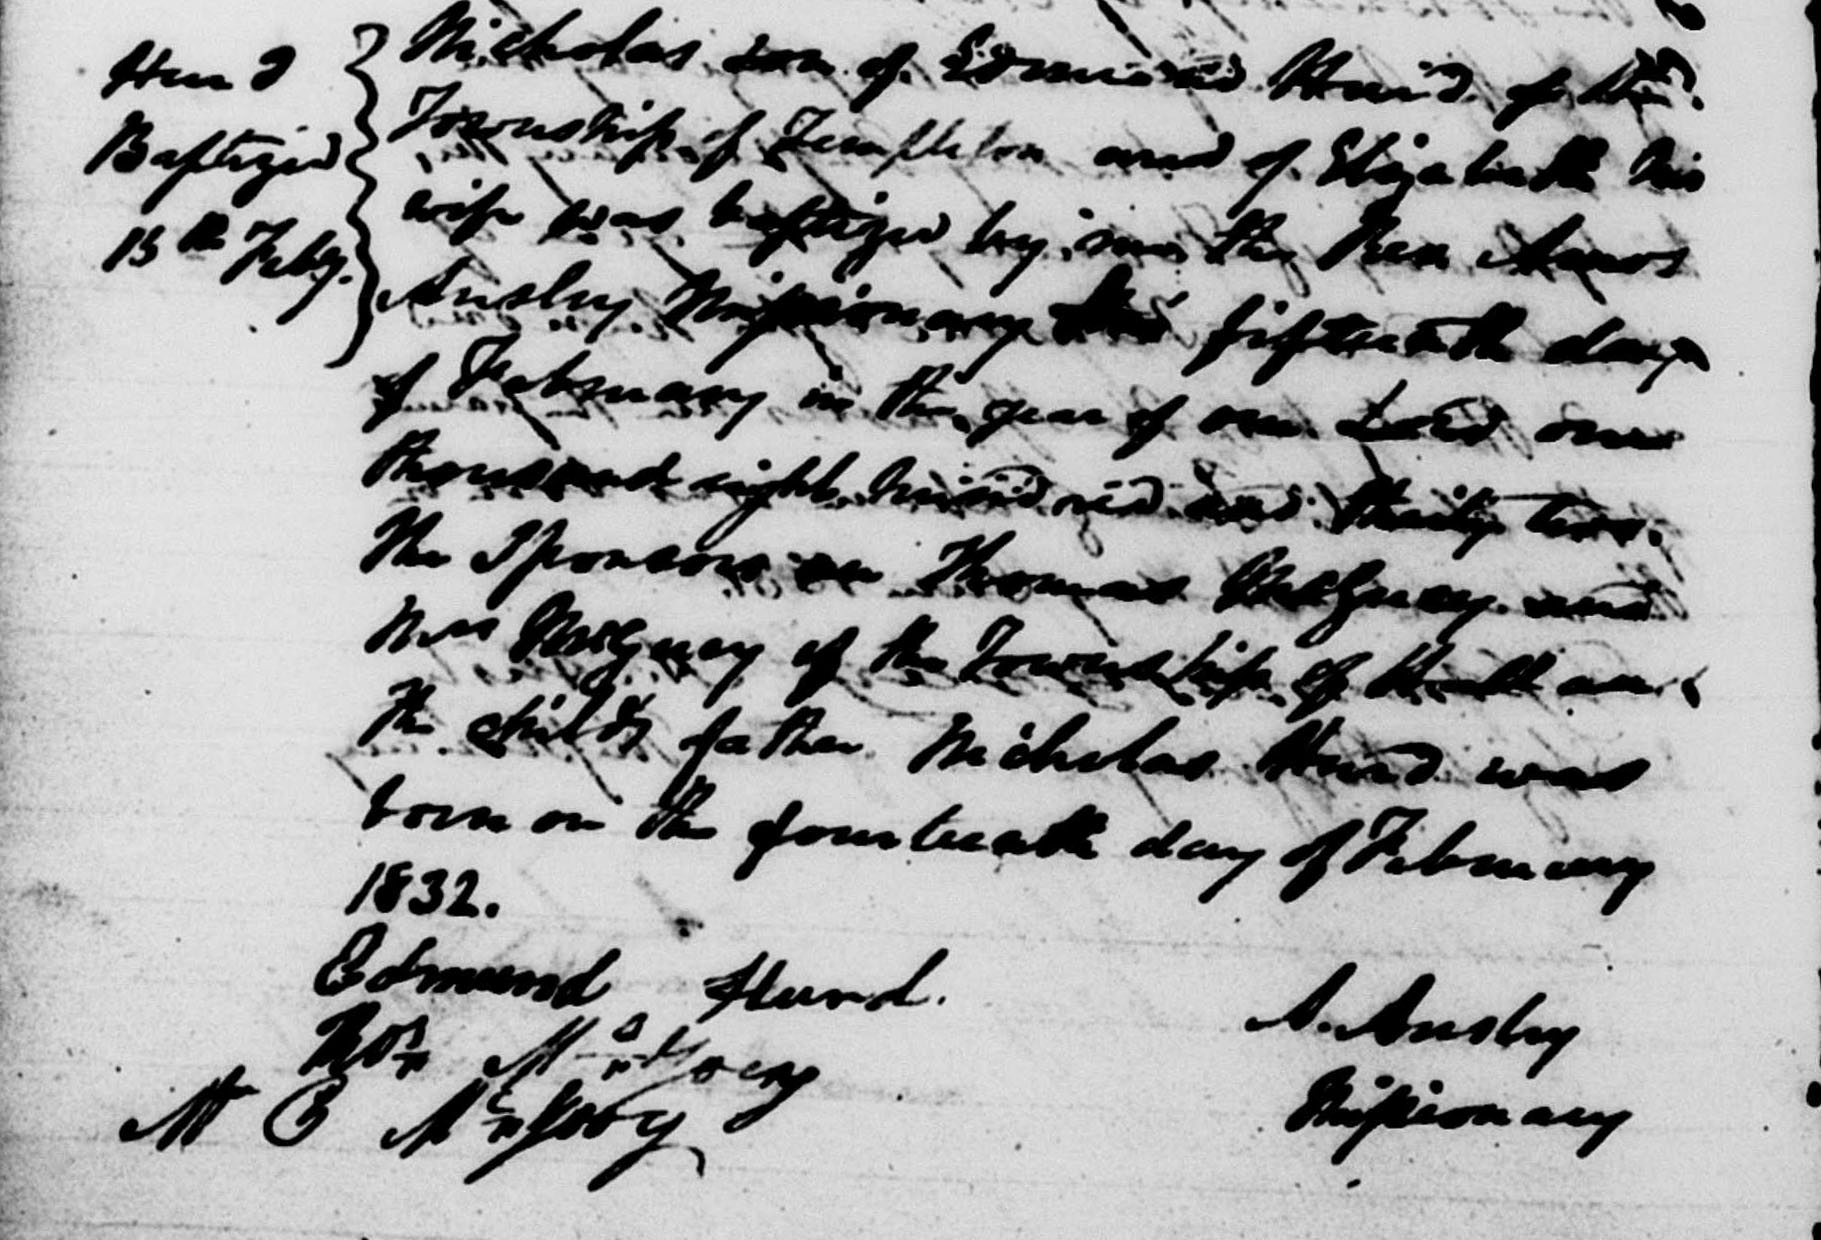 Hurd
Baptized
15th Feby.
Nicholas son of Edmund Hurd of the
Township of Templeton and of Elizabeth his
wife was baptized by me the Rev Amos
Ansley Missionary this fifteenth day
of February in the year of our Lord one
thousand eight hundred and thirty two.
The Sponsors are Thomas McGuey and
Mrs McGuey of the Township of Hull and
the child's father Nicholas Hurd was
born on the fourteenth day of February
1832.
Edmund Hurd.
Thos
M E
A. Ansley
Missionary